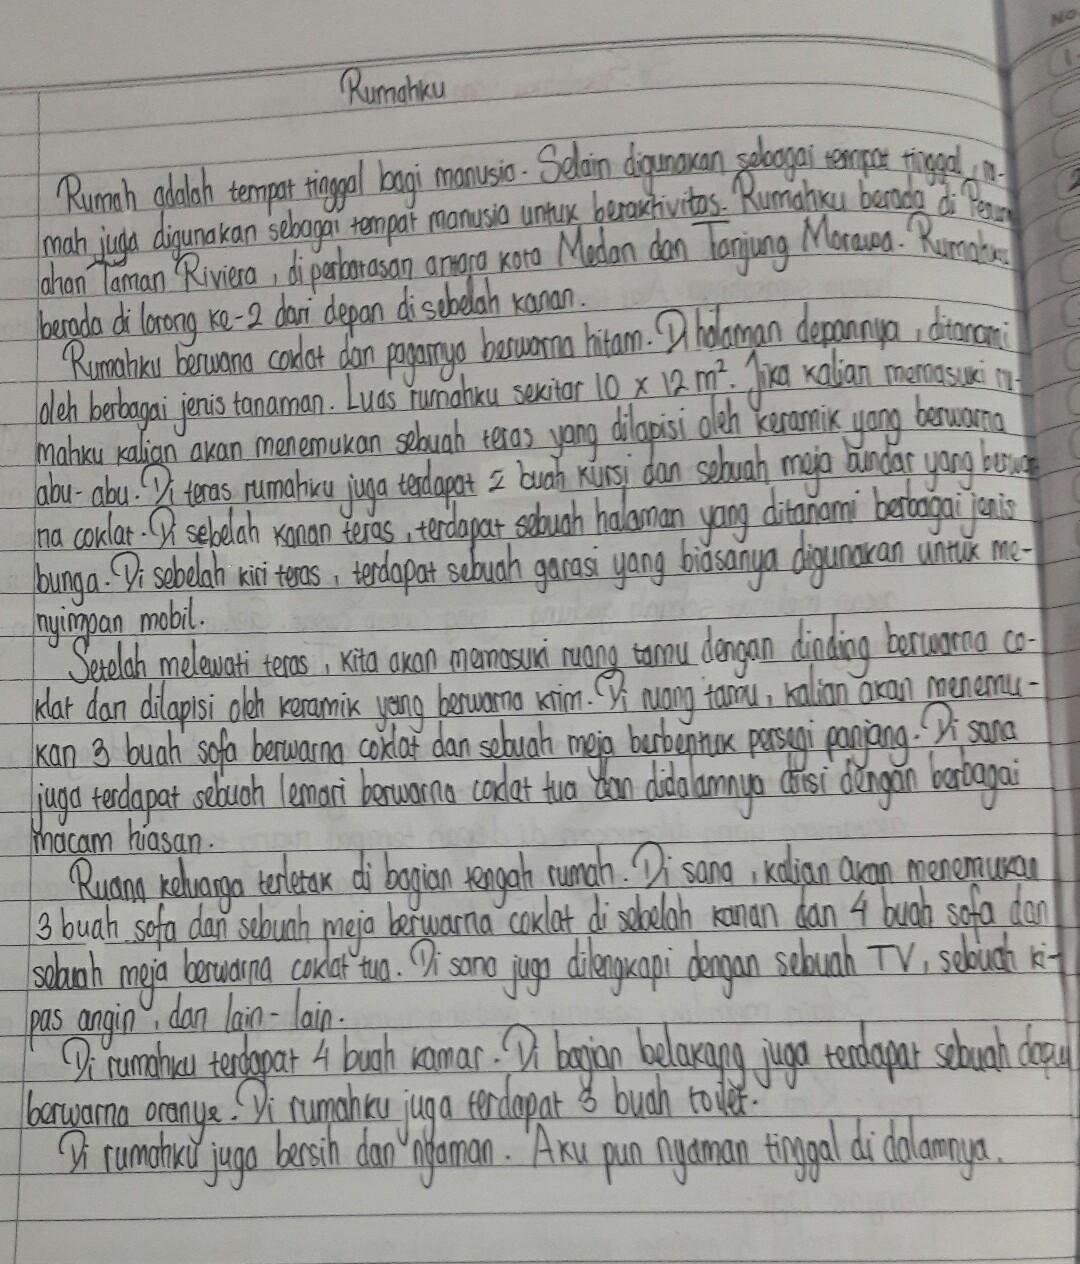 Rumahku
Rumah adalah tempat tinggal bagi manusia. Selain digunakan sebagai tempat tinggal, ru-
mah juga digunakan sebagai tempat manusia untuk beraktivitas. Rumahku berada di Perum
ahan Taman Riviera, di perbatasan antara kota Medan dan Tanjung Morawa. Rumahku
berada di lorong ke-2 dari depan di sebelah kanan.
Rumahku berwana coklat dan pagarnya berwarna hitam. Di halaman depannya, ditanami
oleh berbagai jenis tanaman. Luas rumahku sekitar 10 x 12 m². Jika kalian memasuki ru-
mahku kalian akan menemukan sebuah teras yang dilapisi oleh keramik yang berwarna
abu-abu. Di teras rumahku juga terdapat 2 buah kursi dan sebuah meja bundar yang berwar
na coklat. Di sebelah kanan teras, terdapat sebuah halaman yang ditanami berbagai jenis
bunga. Di sebelah kiri teras, terdapat sebuah garasi yang biasanya digunakan untuk me-
nyimpan mobil.
Setelah melewati teras, kita akan memasuki ruang tamu dengan dinding berwarna co-
klat dan dilapisi oleh keramik yang berwarna krim. Di ruang tamu, kalian akan menemu-
kan 3 buah sofa berwarna coklat dan sebuah meja berbentuk persegi panjang. Di sana
juga terdapat sebuah lemari berwarna coklat tua dan didalamnya diisi dengan berbagai
macam hiasan.
Ruang keluarga terletak di bagian tengah rumah. Di sana, kalian akan menemukan
3 buah sofa dan sebuah meja berwarna coklat di sebelah kanan dan 4 buah sofa dan
sebuah meja berwarna coklat tua. Di sana juga dilengkapi dengan sebuah TV, sebuah ki-
pas angin, dan lain-lain.
Di rumahku terdapat 4 buah kamar. Di bagian belakang juga terdapat sebuah dapur
berwarna oranye. Di rumahku juga terdapat 3 buah toilet.
Di rumahku juga bersih dan nyaman. Aku pun nyaman tinggal di dalamnya.